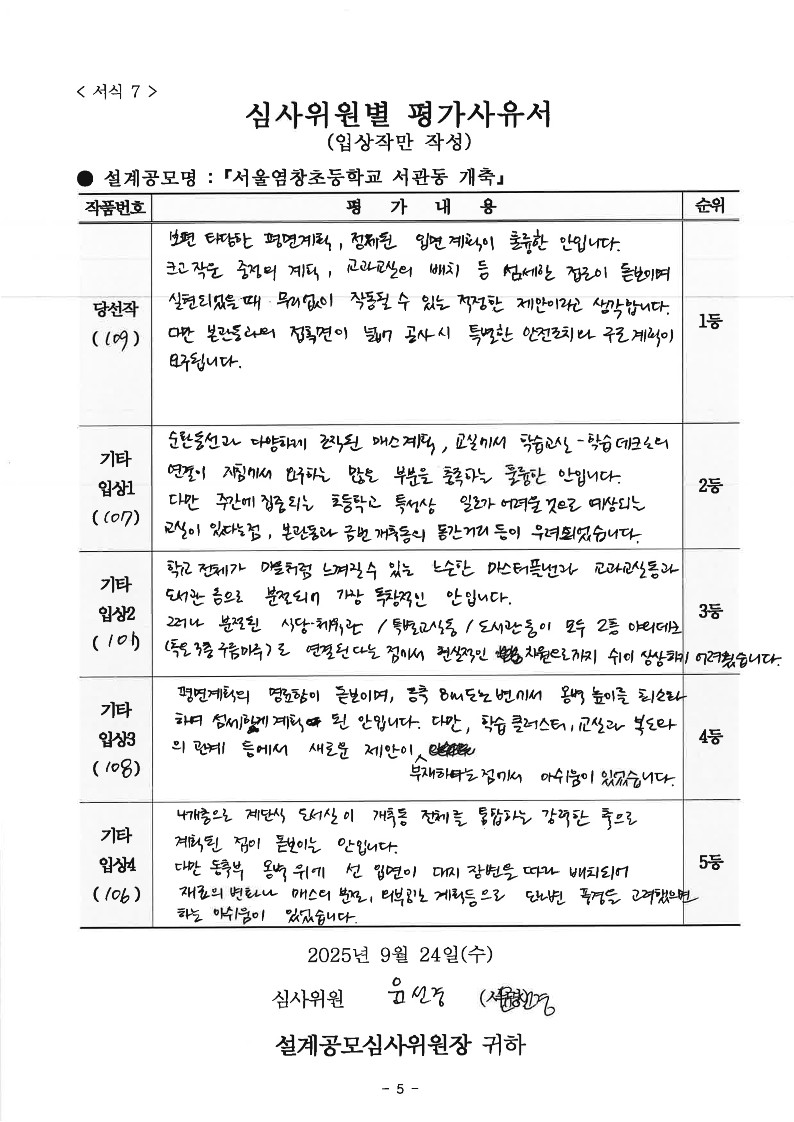 < 서식 7 >
심사위원별 평가사유서
(입상작만 작성)
● 설계공모명 : 『서울염창초등학교 서관동 개축』
작품번호 평 가 내 용 순위
당선작
(109)
보편 타당한 평면계획, 정제된 입면계획이 훌륭한 안입니다.
크고작은 중정의 계획, 교과교실의 배치 등 섬세한 접근이 돋보이며
실현되었을때 무리없이 작동될 수 있는 적정한 제안이라고 생각합니다.
다만 본관동과의 접촉면이 넓어 공사시 특별한 안전조치와 구조계획이
요구됩니다.
1등
기타
입상1
(107)
순환동선과 다양하게 조작된 매스계획, 교실에서 학습교실-학습데크로의
연결이 지침에서 요구하는 많은 부분을 충족하는 훌륭한 안입니다.
다만 주간에 집중되는 초등학교 특성상 일조가 어려울 것으로 예상되는
교실이 있다는점, 본관동과 금번 개축동의 동간거리 등이 우려되었습니다.
2등
기타
입상2
(101)
학교 전체가 마을처럼 느껴질수 있는 느슨한 마스터플랜과 교과교실동과
도서관 등으로 분절되어 가장 독창적인 안입니다.
그러나 분절된 식당·체육관 / 특별교실동 / 도서관동이 모두 2층 야외데크
(혹은 3층 구름마루)로 연결된다는 점에서 현실적인 차원으로까지 쉬이 상상하기 어려웠습니다.
3등
기타
입상3
(108)
평면계획의 명료함이 돋보이며, 동측 8m도로변에서 옹벽 높이를 최소화
하여 섬세하게 계획 된 안입니다. 다만, 학습클러스터, 교실과 복도와
의 관계 등에서 새로운 제안이
부재하다는 점에서 아쉬움이 있었습니다.
4등
기타
입상4
(106)
4개층으로 계단식 도서실이 개축동 전체를 통합하는 강력한 축으로
계획된 점이 돋보이는 안입니다.
다만 동측부 옹벽 위에 선 입면이 대지 장변을 따라 배치되어
재료의 변화나 매스의 분절, 외부공간 계획등으로 도로변 풍경을 고려했으면
하는 아쉬움이 있었습니다.
5등
2025년 9월 24일(수)
심사위원 윤선경
설계공모심사위원장 귀하
- 5 -